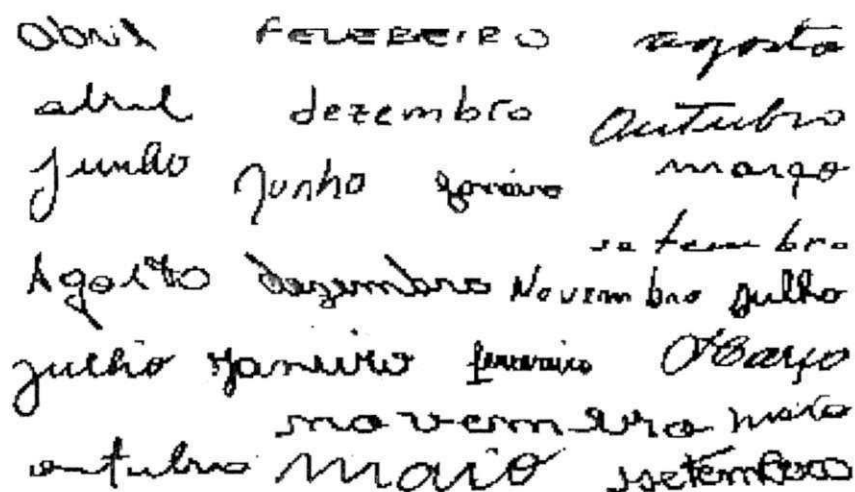 Abril FEVEREIRO agosto
abril dezembro Outubro
junho Junho janeiro março
setembro
Agosto dezembro Novembro julho
julho Janeiro fevereiro Março
novembro maio
outubro maio setembro